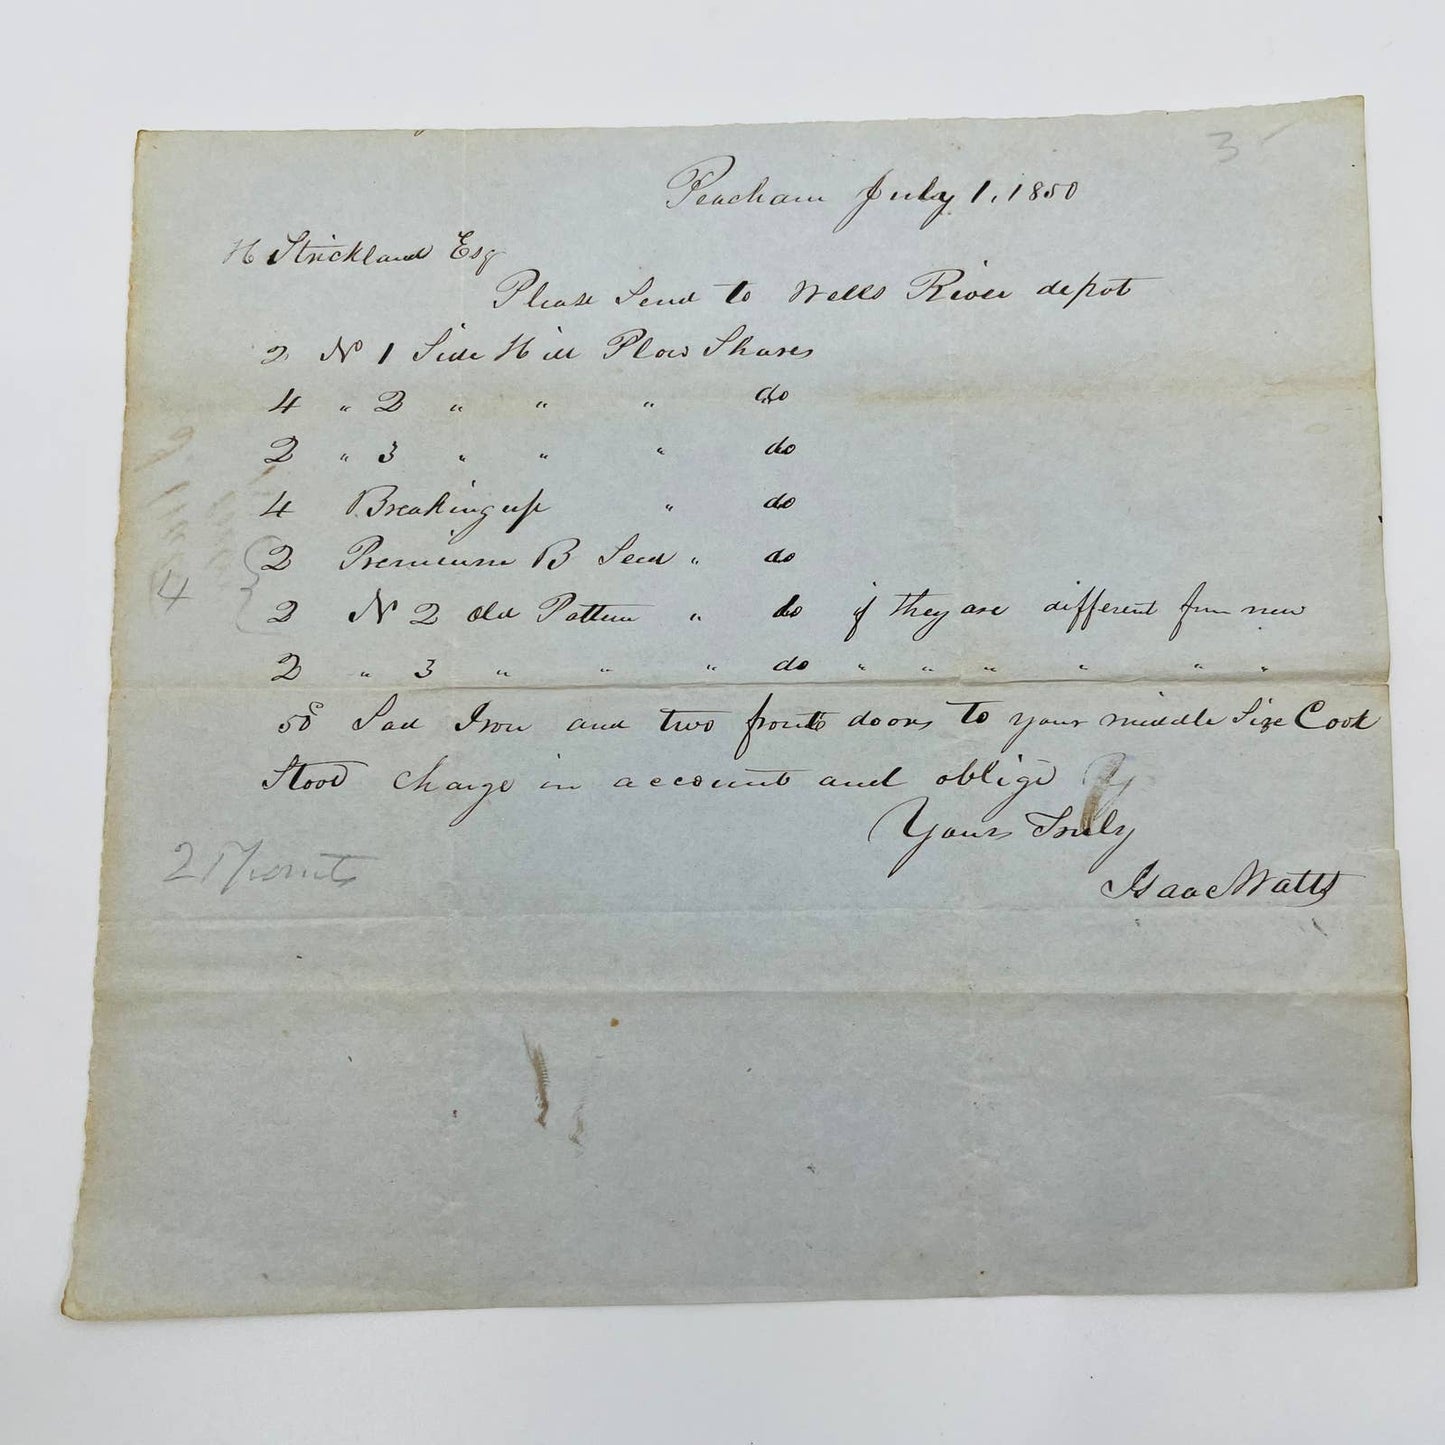 3
Peacham July 1, 1850
H Strickland Esq
Please Send to Wells River depot
2 No 1 Side Hill Plow Shares
4 " 2 " " " do
2 " 3 " " " do
4 Breaking up " do
2 Premium B Seed " do
4
2 No 2 Old Pattern " do if they are different from new
2 " 3 " " " do " " " " " "
50 Sad Iron and two fronts doors to your middle Size Cook
Stove Charge in account and oblige Y
Yours Truly
Isaac Watts
21 Points